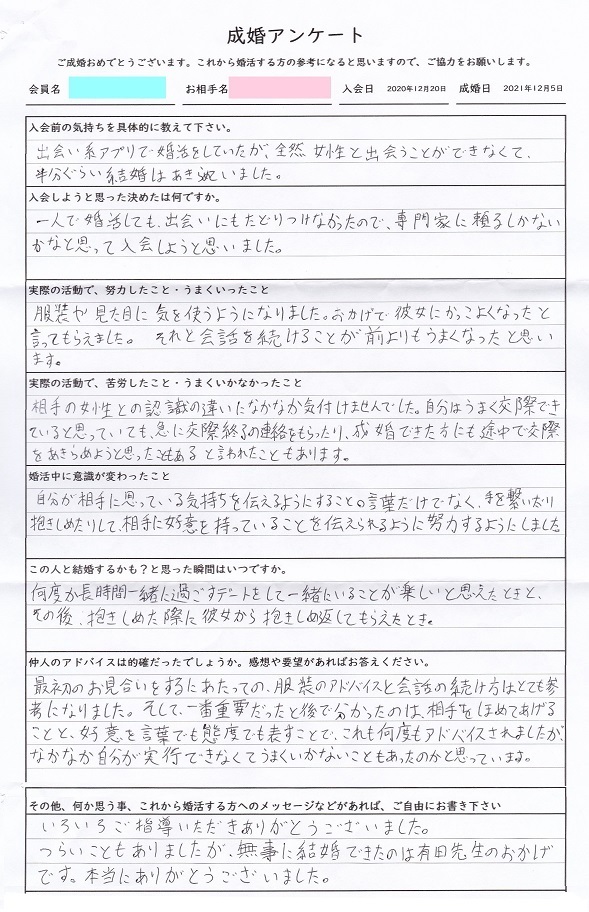 成婚アンケート
ご成婚おめでとうございます。これから婚活する方の参考になると思いますので、ご協力をお願いします。
会員名 お相手名 入会日 2020年12月20日 成婚日 2021年12月5日
入会前の気持ちを具体的に教えて下さい。
出会い系アプリで婚活をしていたが、全然女性と出会うことができなくて、
半分ぐらい結婚はあきらめていました。
入会しようと思った決めたは何ですか。
一人で婚活しても、出会いにもたどりつけなかったので、専門家に頼るしかない
かなと思って入会しようと思いました。
実際の活動で、努力したこと・うまくいったこと
服装や見た目に気を使うようになりました。おかげで彼女にかっこよくなったと
言ってもらえました。 それと会話を続けることが前よりもうまくなったと思い
ます。
実際の活動で、苦労したこと・うまくいかなかったこと
相手の女性との認識の違いになかなか気付けませんでした。自分はうまく交際でき
ていると思っていても、急に交際終了の連絡をもらったり、成婚できた方にも途中で交際
をあきらめようと思ったこともあると言われたこともあります。
婚活中に意識が変わったこと
自分が相手に思っている気持ちを伝えるようにすること。言葉だけでなく、手を繋いだり
抱きしめたりして、相手に好意を持っていることを伝えられるように努力するようにしました
この人と結婚するかも？と思った瞬間はいつですか。
何度か長時間一緒に過ごすデートをして一緒にいることが楽しいと思えたときと、
その後、抱きしめた際に彼女から抱きしめ返してもらえたとき。
仲人のアドバイスは的確だったでしょうか。感想や要望があればお答えください。
最初のお見合いをするにあたっての、服装のアドバイスと会話の続け方はとても参
考になりました。そして、一番重要だったと後で分かったのは、相手をほめてあげる
ことと、好意を言葉でも態度でも表すことで、これも何度もアドバイスされましたが、
なかなか自分が実行できなくてうまくいかないこともあったのかと思っています。
その他、何か思う事、これから婚活する方へのメッセージなどがあれば、ご自由にお書き下さい
いろいろご指導いただきありがとうございました。
つらいこともありましたが、無事に結婚できたのは有田先生のおかげ
です。本当にありがとうございました。